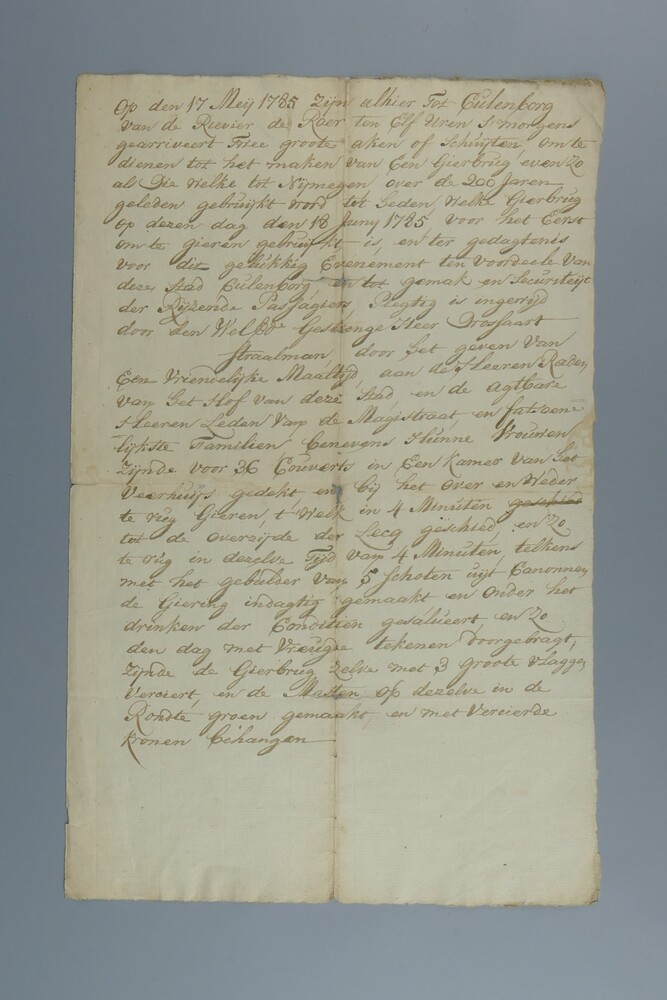 Op den 17 Meij 1785 Zijn alhier Tot Culenborg
van de Rievier de Roer ten Elf Uren S morgens
gearriveert Twee groote aken of Schuijten, om te
dienen tot het maken van Een Gierbrug even Zo
als Die welke tot Nijmegen over de 200 Jaren
geleden gebruijkt word tot heden, welke Gierbrug
op dezen dag den 18 Juny 1785 voor het Eerst
om te gieren gebruijkt is, en ter gedagtenis
voor dit gelukkig Evenement ten voordeele van
deze Stad Culenborg, en tot gemak en Securiteijt
der Rijzende Passagiers Plegtig is ingewijd
door den Wel Ed Gestrenge Heer Drossaart
Straalman, door het geven van
Een Vriendelijke Maaltijd, aan de Heeren Raden
van het Hof van deze Stad, en de agtbare
Heeren Leden van de Magistraat, en fatsoene
lijkste Familien benevens Hunne Vrouwen
Zijnde voor 36 Couverts in Een Kamer van het
Veerhuijs gedekt, en bij het over en Weder
te rug Gieren, t welk in 4 Minuten geschied
tot de overzijde der Lecq geschied, en Zo
te rug in dezelve Tijd van 4 Minuten, telkens
met het gebulder van 5 Schoten uijt Canonnen
de Giering indagtig gemaakt en onder het
drinken der Conditien gesalueert, en Zo
den dag met Vreugde tekenen doorgebragt,
Zijnde de Gierbrug Zelve met 3 groote Vlaggen
Verciert, en de Masten op dezelve in de
Rondte groen gemaakt, en met Vercierde
kronen behangen